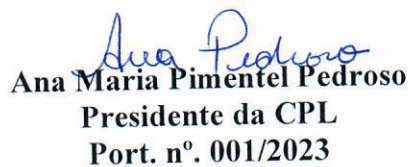 Ana Pedroso
Ana Maria Pimentel Pedroso
Presidente da CPL
Port. nº. 001/2023